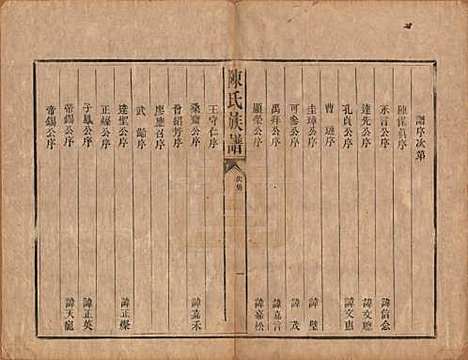 譜序次第
陳傕眞序
禾言公序 諱信忿
達先公序 諱文聰
孔貞公序 諱文惠
曹璉序
圭璋公序 諱壁
可參公序 諱茂
禹祥公序 諱嘉言
顯榮公序 諱嘉松
陳氏族譜
次第
一
王守仁序
桑齋公序 諱嘉禾
曾紹芳序
廖應召序
武勛序
達聖公序
正緣公序 諱正燦
子鳳公序
帝錫公序 諱正英
帝錫公序 諱天寵